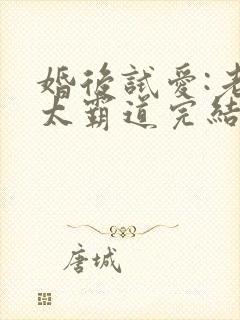 婚後試愛:老
太霸道完結
唐城